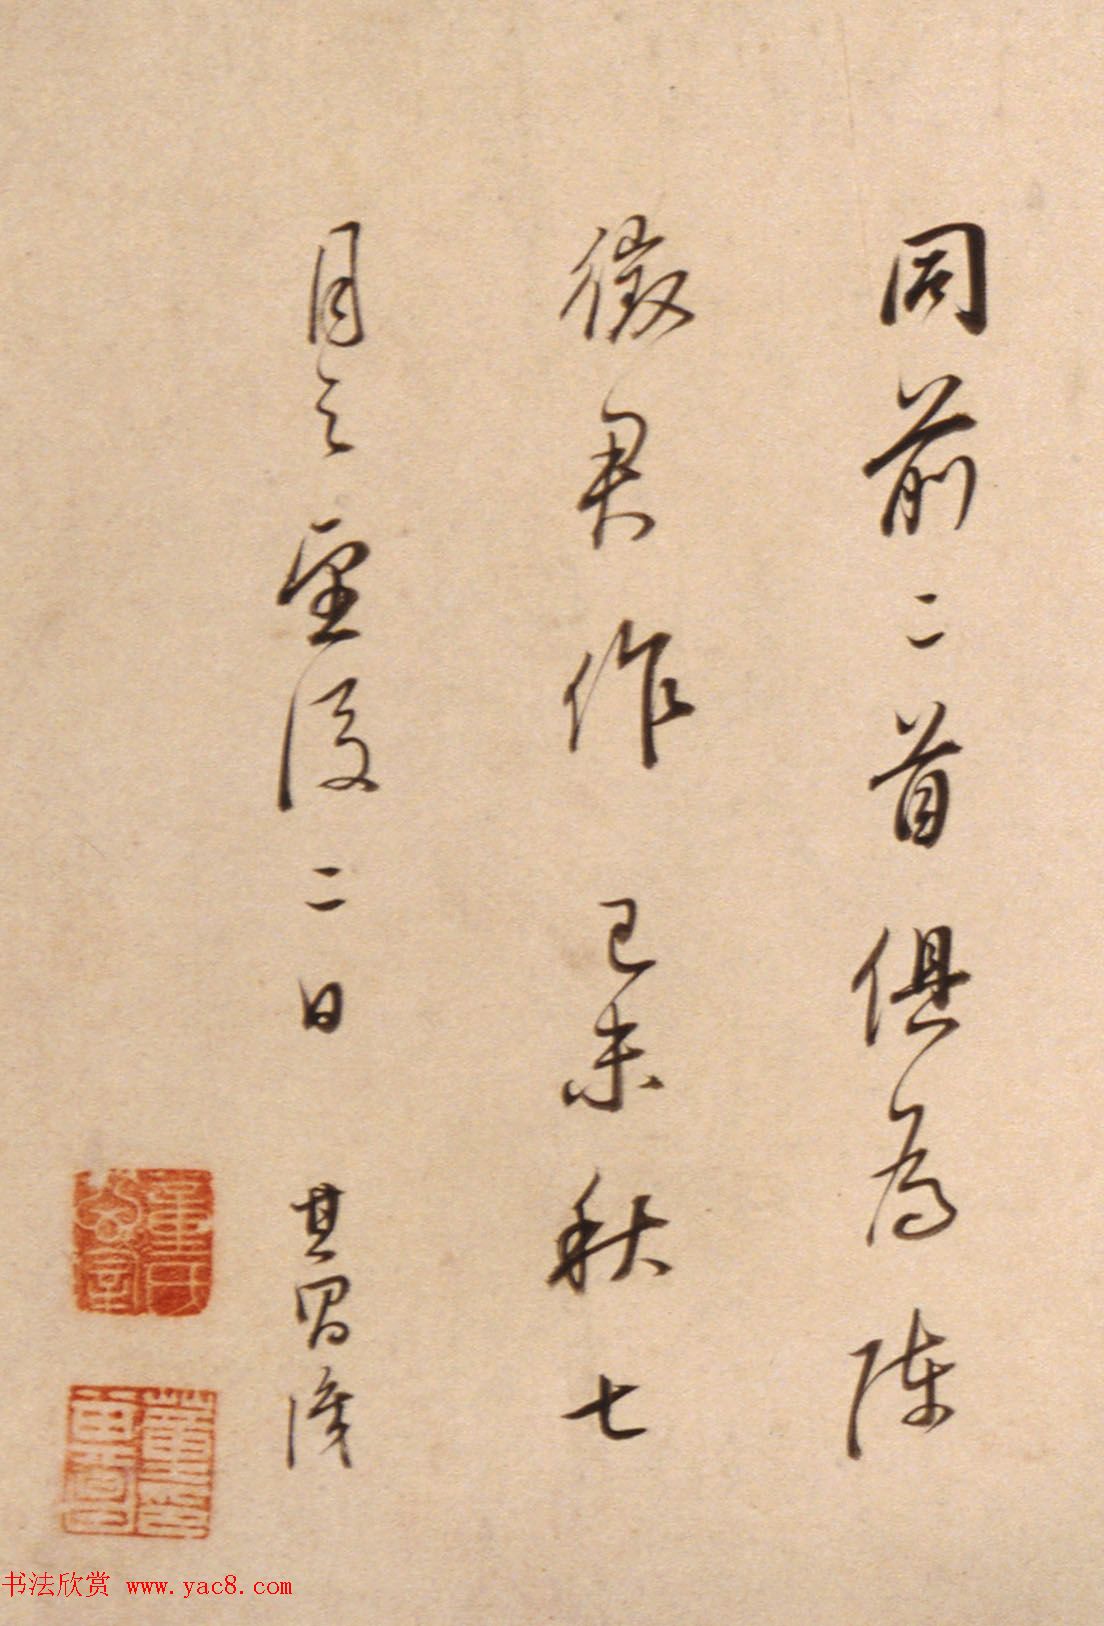 同前二首俱为陈
徵君作 己未秋七
月之望后二日 其昌识
書法欣赏 www.yac8.com